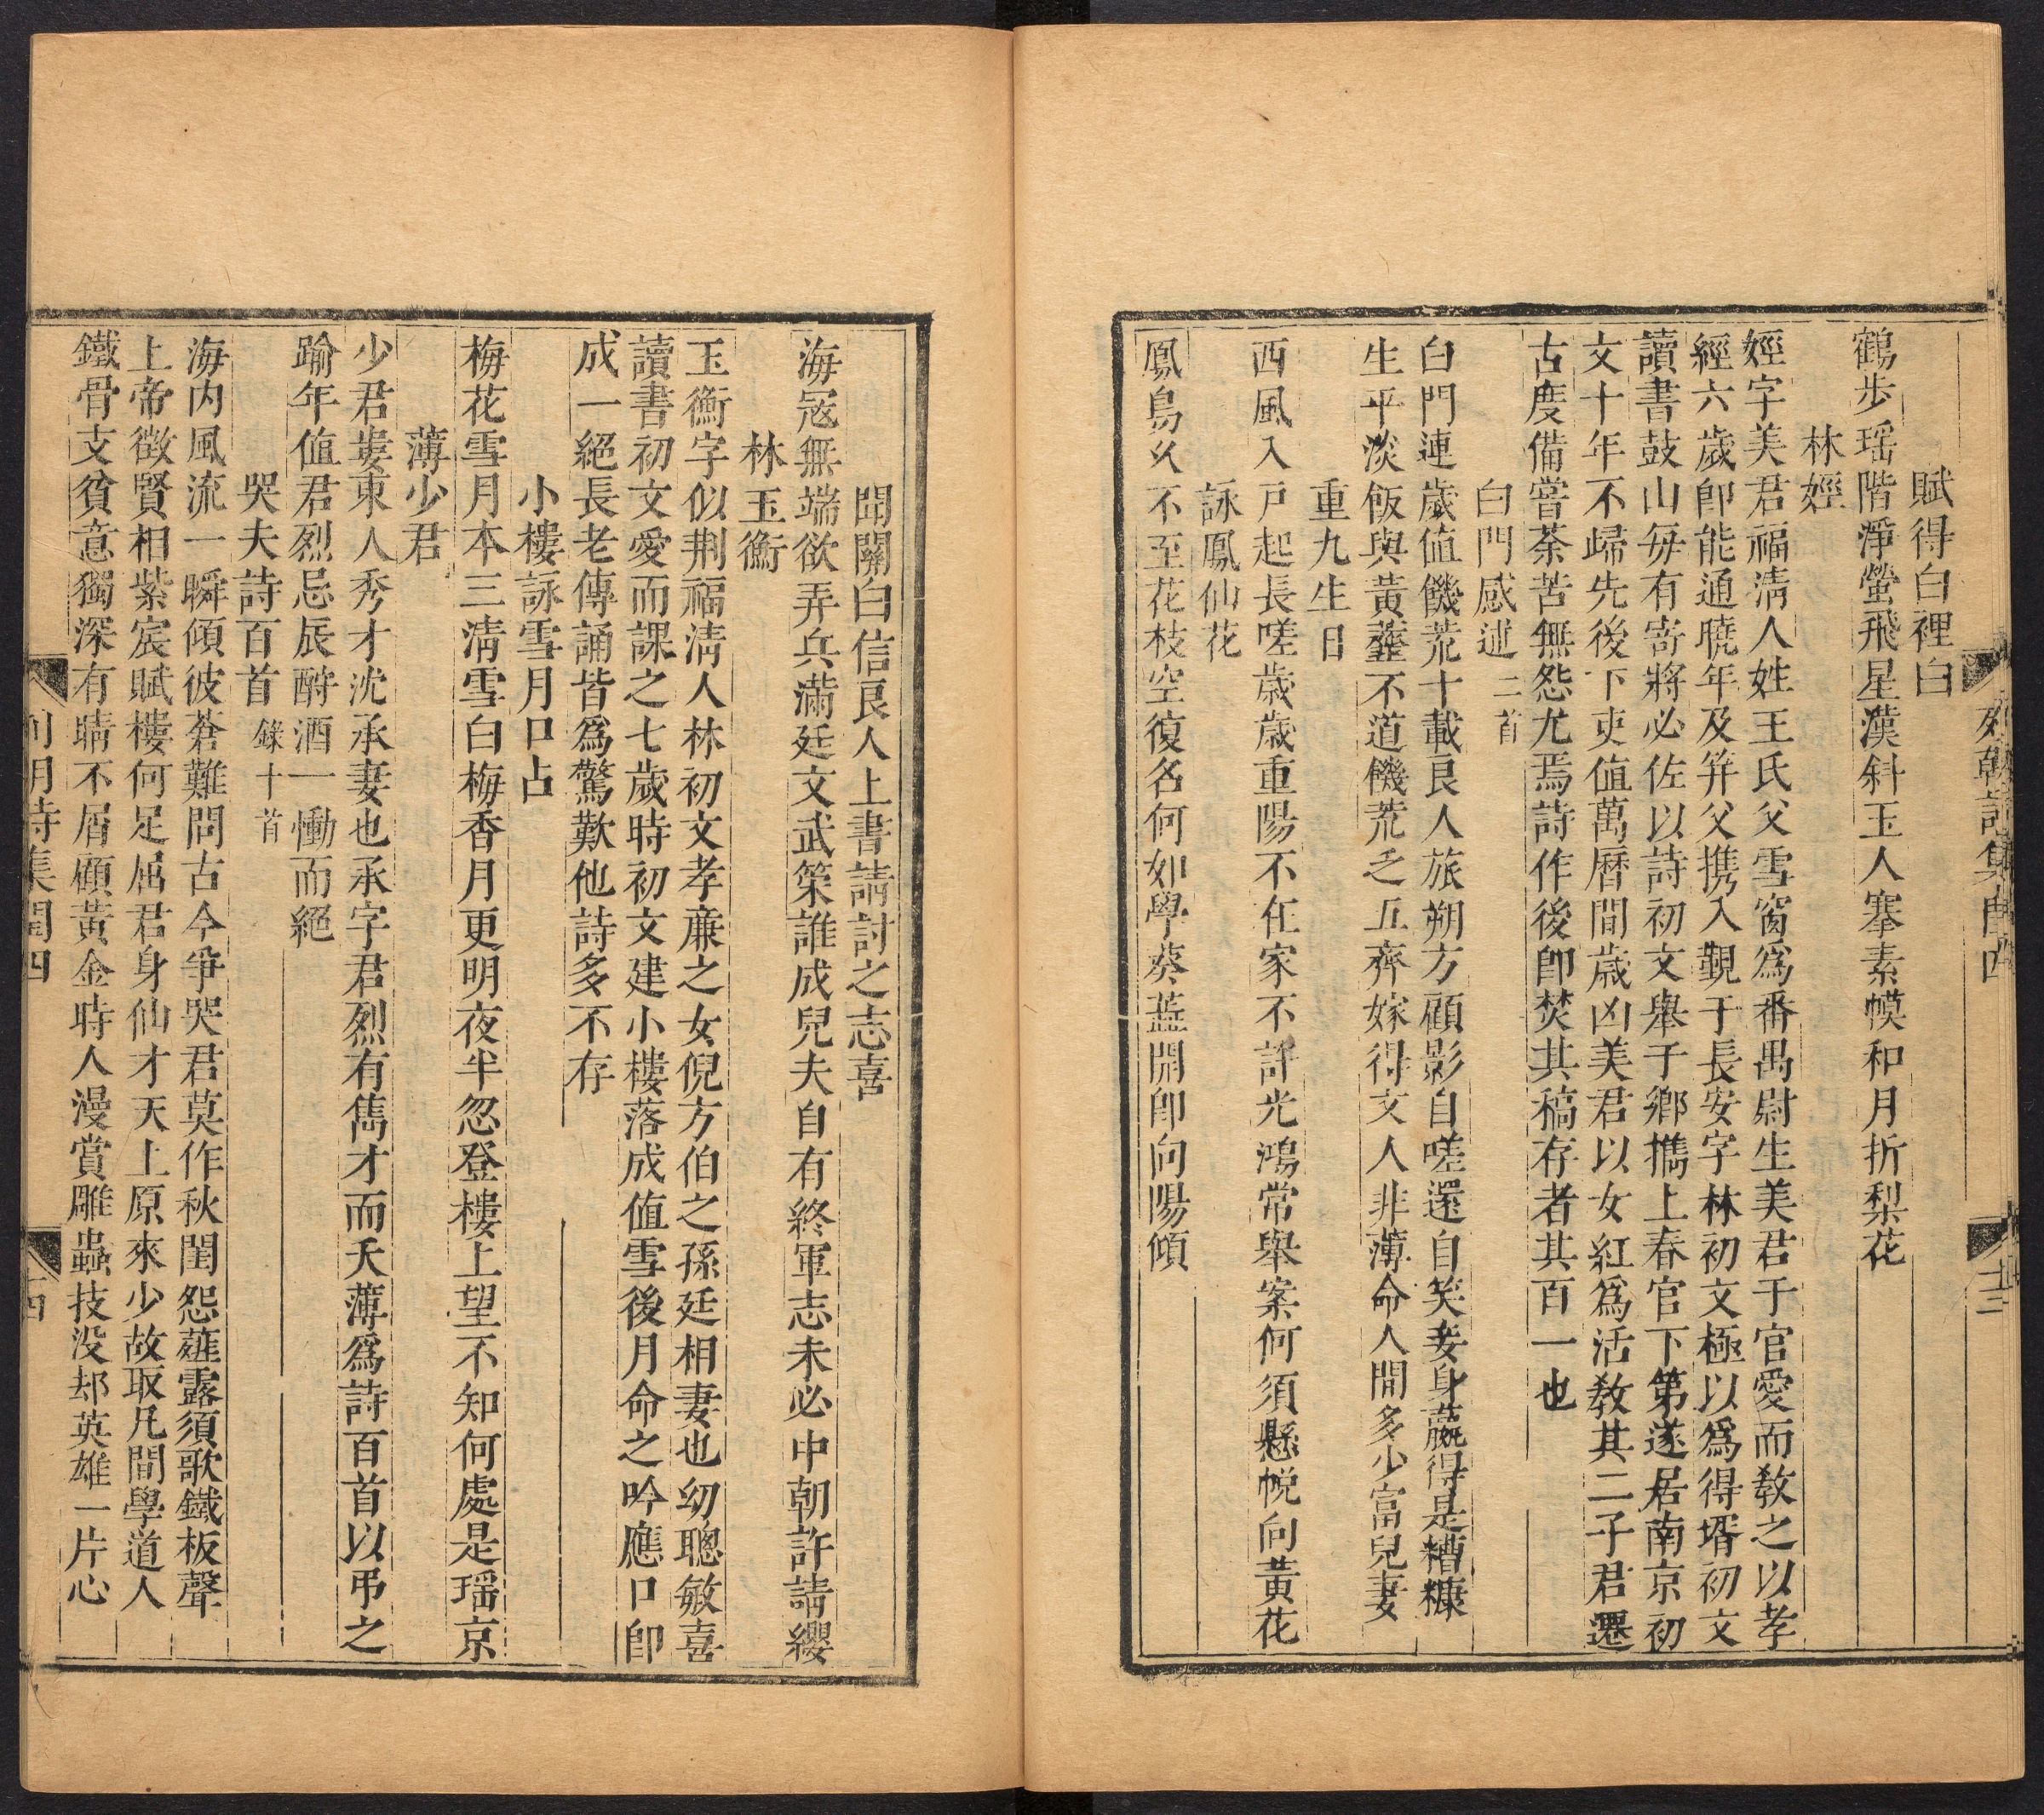 賦得白裡白
鶴步瑶階淨螢飛星漢斜玉人搴素幙和月折梨花
林婭
婭字美君福淸人姓王氏父雪窗爲番禺尉生美君于官愛而敎之以孝
經六歲卽能通曉年及笄父携入覲于長安字林初文極以爲得壻初文
讀書鼓山每有寄將必佐以詩初文舉于鄕攜上春官下第遂居南京初
文十年不歸先後下吏值萬曆間歲凶美君以女紅爲活敎其二子君遷
古度備嘗荼苦無怨尤焉詩作後卽焚其稿存者其百一也
白門感述二首
白門連歲值饑荒十載良人旅朔方顧影自嗟還自笑妾身嬴得是糟糠
生平淡飯與黃虀不道饑荒乏五齊嫁得文人非薄命人間多少富兒妻
重九生日
西風入戸起長嗟歲歲重陽不在家不許光鴻常舉案何須懸帨向黃花
詠鳳仙花
鳳鳥久不至花枝空復名何如學葵藍開卽向陽傾
聞關白信良人上書請討之志喜
海寇無端欲弄兵滿廷文武筞誰成兒夫自有終軍志未必中朝許請纓
林玉衡
玉衡字似荆福淸人林初文孝廉之女倪方伯之孫廷相妻也幼聰敏喜
讀書初文愛而課之七歲時初文建小樓落成值雪後月命之吟應口卽
成一絕長老傳誦皆爲驚歎他詩多不存
小樓詠雪月口占
梅花雪月本三淸雪白梅香月更明夜半忽登樓上望不知何處是瑶京
薄少君
少君婁東人秀才沈承妻也承字君烈有雋才而夭薄爲詩百首以弔之
踰年值君烈忌辰酹酒一慟而絕
哭夫詩百首錄十首
海内風流一瞬傾彼蒼難問古今爭哭君莫作秋閨怨薤露須歌鐵板聲
上帝徵賢相紫宸賦樓何足屈君身仙才天上原來少故取凡間學道人
鐵骨支貧意獨深有睛不屑顧黃金時人漫賞雕蟲技没却英雄一片心